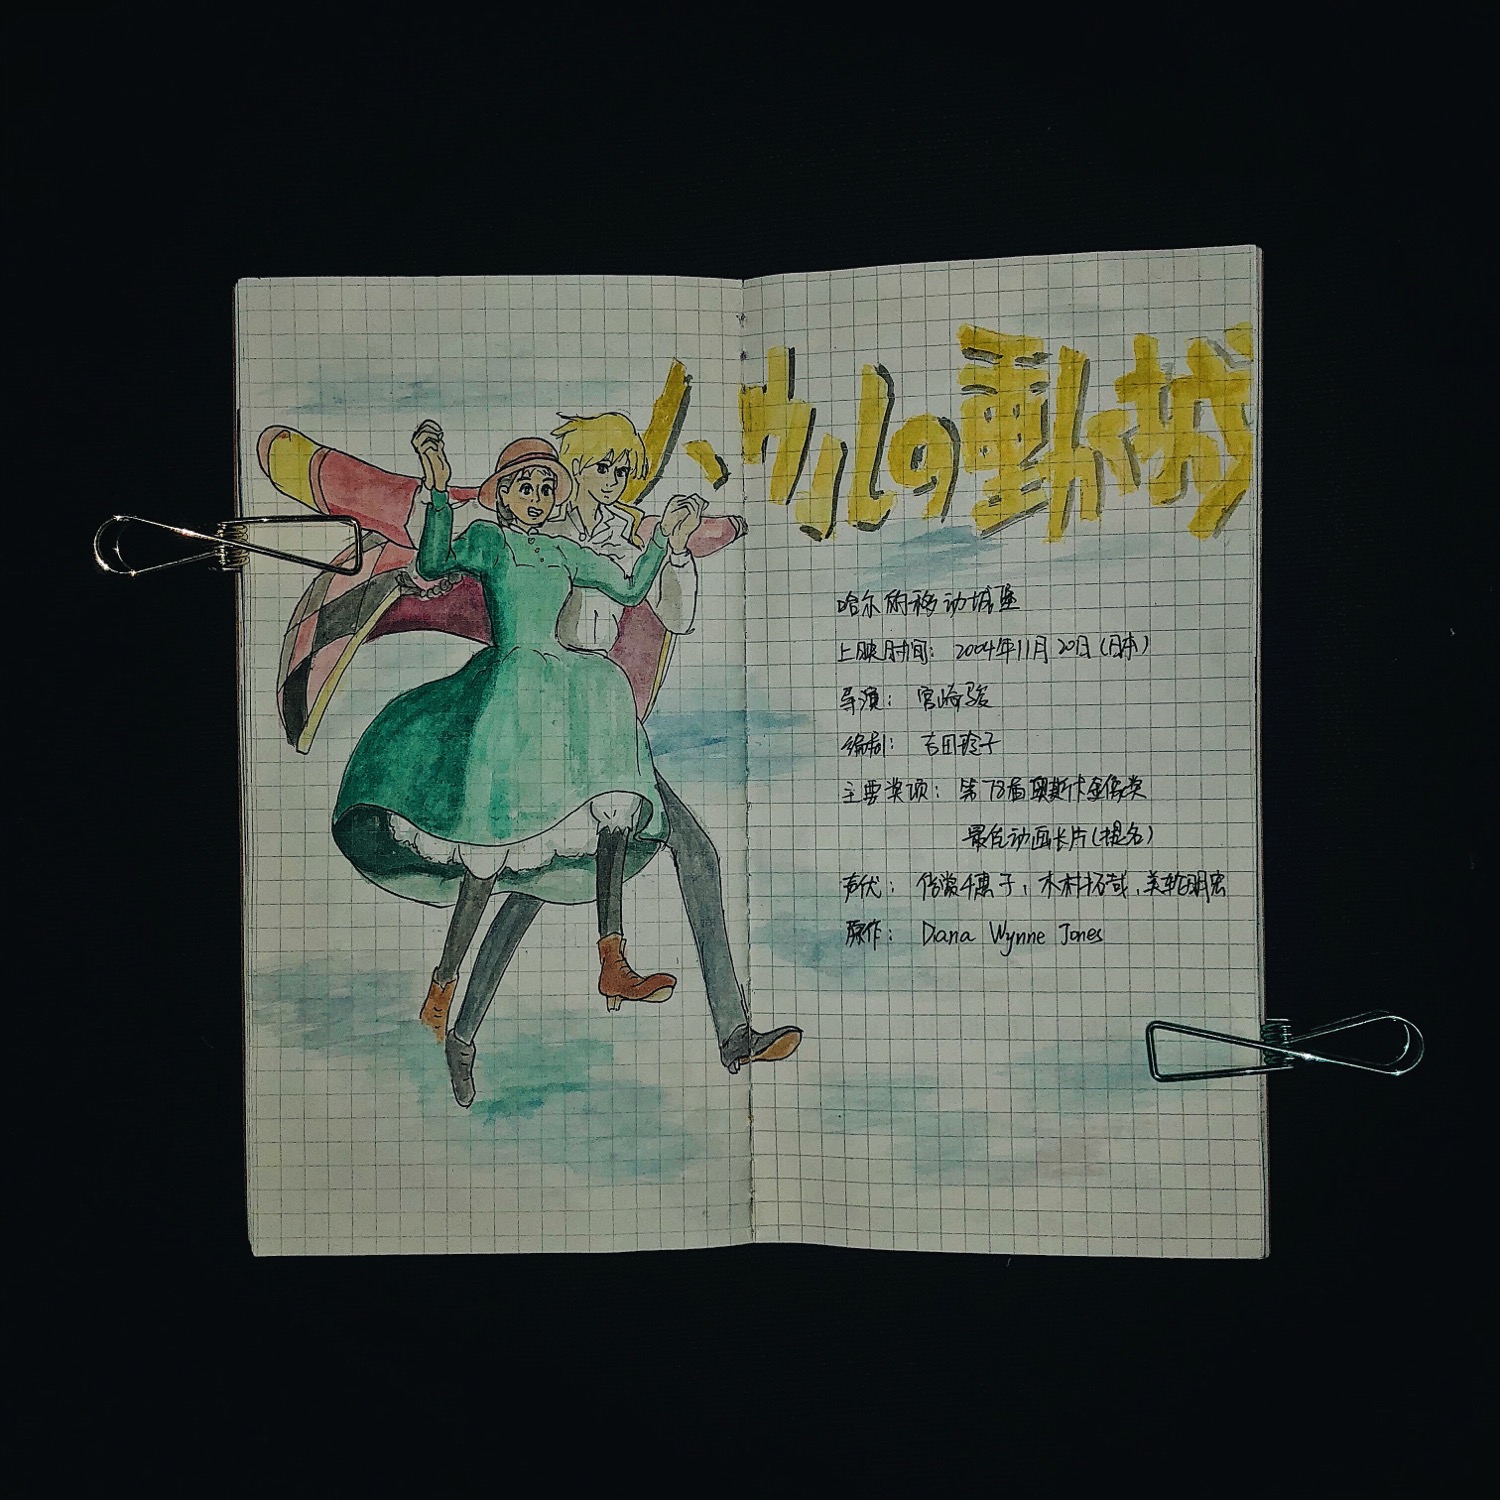 ハウルの動く城
哈尔的移动城堡
上映时间：2004年11月20日（日本）
导演：宫崎骏
编剧：吉田玲子
主要奖项：第78届奥斯卡金像奖
最佳动画长片（提名）
声优：倍赏千惠子、木村拓哉、美轮明宏
原作：Diana Wynne Jones